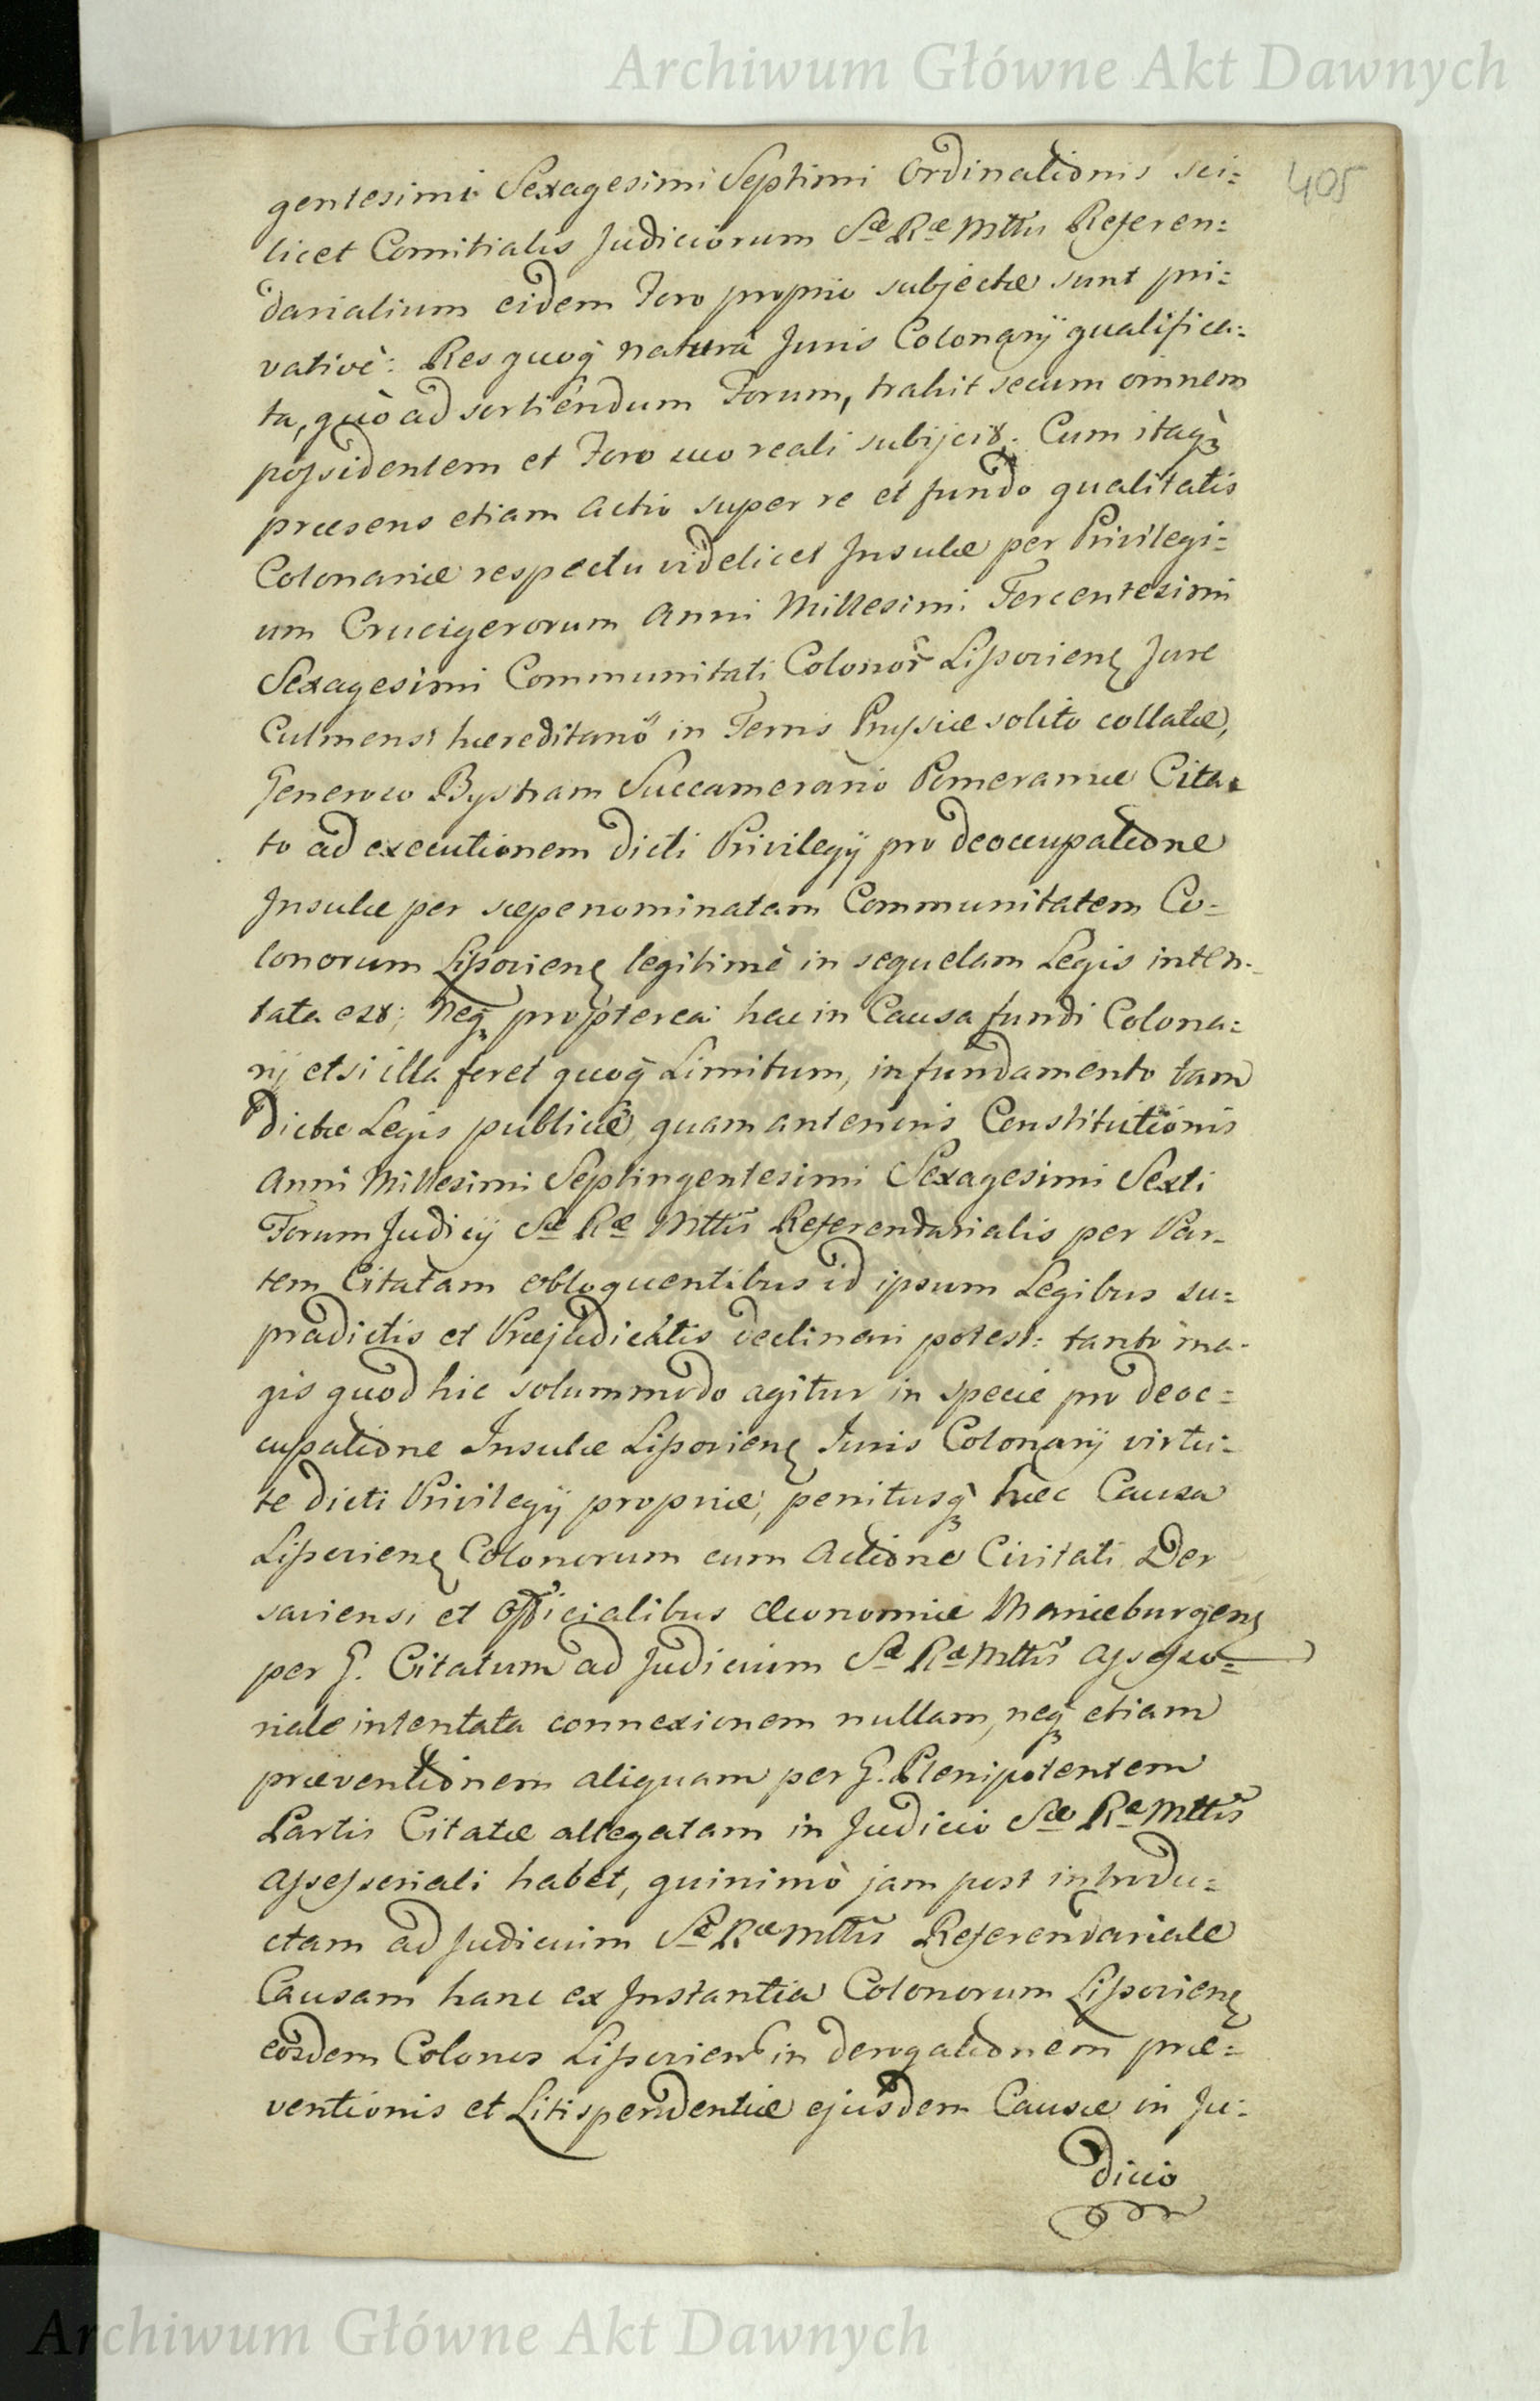 Archiwum Główne Akt Dawnych
405
gentesimi Sexagesimi Septimi Ordinationis sci=
licet Comitialis Judiciorum Sæ Ræ Mttis Referen=
darialium eidem Foro proprio subjectæ sunt pri=
vativè: Res quoq₃ naturâ Juris Colonarÿ qualifica=
ta, quò ad sortiendum Forum, trahit secum omnem
possidentem et Foro suo reali subijcit. Cum itaq₃
præsens etiam Actio super re et fundo qualitatis
Colonariæ respectu videlicet Insulæ per Privilegi=
um Crucigerorum Anni Millesimi Tercentesimi
Sexagesimi Communitati Colonor̃ Lisovien̨ Jure
Culmensi hæreditario in Terris Prussiæ solito collatæ,
Generoso Bystram Succamerario Pomeraniæ Cita=
to ad executionem dicti Privilegÿ pro deoccupatione
Insulæ per sæpenominatam Communitatem Co=
lonorum Lisovien̨ legitimè in sequelam Legis inten=
tata est; neq₃ propterea hac in Causa fundi Colona=
rij etsi illa foret quoq₃ Limitum, in fundamento tam
dictæ Legis publicæ, quam anterioris Constitutionis
Anni Millesimi Septingentesimi Sexagesimi Sexti
Forum Judicÿ Sæ Ræ Mttis Referendarialis per Par=
tem Citatam obloquentibus id ipsum Legibus su=
pradictis et Præjudicatis declinari potest: tanto ma=
gis quod hic solummodo agitur in specie pro deoc=
cupatione Insulæ Lisovien̨ Juris Colonarÿ virtu=
te dicti Privilegÿ propriæ, penitusq₃ hæc Causa
Lisovien̨ Colonorum cum Actione Civitati Der
saviensi et Officialibus Œconomiæ Marieburgen̨
per G. Citatum ad Judicium Sæ Ræ Mttis Assesso=
riale intentata connexionem nullam, neq₃ etiam
præventionem aliquam per G. Plenipotentem
Partis Citatæ allegatam in Judicio Sæ Ræ Mttis
Assessoriali habet, quinimò jam post introdu=
ctam ad Judicium Sæ Ræ Mttis Referendariale
Causam hanc ex Instantia Colonorum Lisovien̨
eosdem Colonos Lisovien̨ in derogationem præ=
ventionis et Litispendentiæ ejusdem Causæ in Ju=
dicio
Archiwum Główne Akt Dawnych